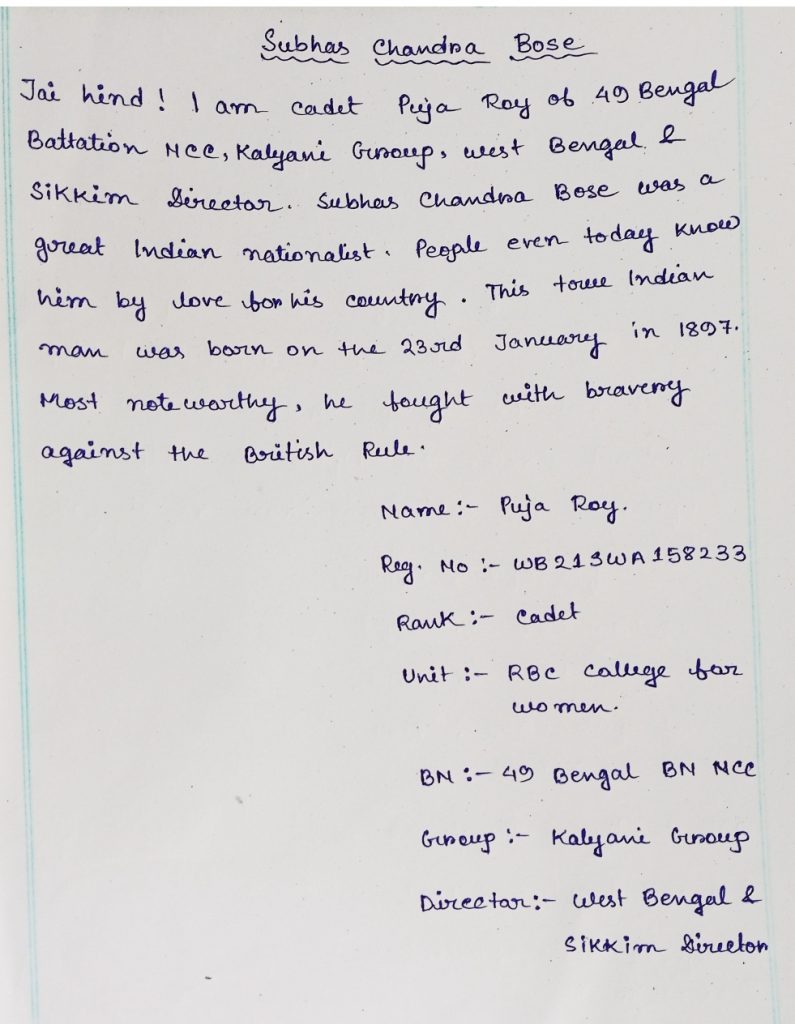 Subhas Chandra Bose
Jai hind! I am cadet Puja Roy of 49 Bengal
Battation NCC, Kalyani Group, west Bengal &
Sikkim Director. Subhas Chandra Bose was a
great Indian nationalist. People even today know
him by love for his country. This true Indian
man was born on the 23rd January in 1897.
Most noteworthy, he fought with bravery
against the British Rule.
Name :- Puja Roy.
Reg. No :- WB21SWA158233
Rank :- Cadet
Unit :- RBC College for
women.
BN :- 49 Bengal BN NCC
Group :- Kalyani Group
Director :- West Bengal &
Sikkim Director